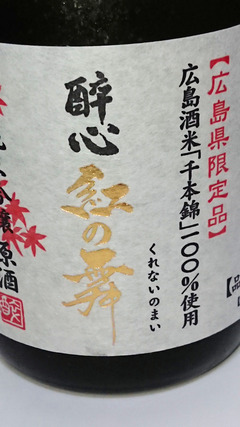 【広島県限定品】
広島酒米「千本錦」一〇〇%使用
くれないのまい
紅の舞
醉心
醸原酒
【品